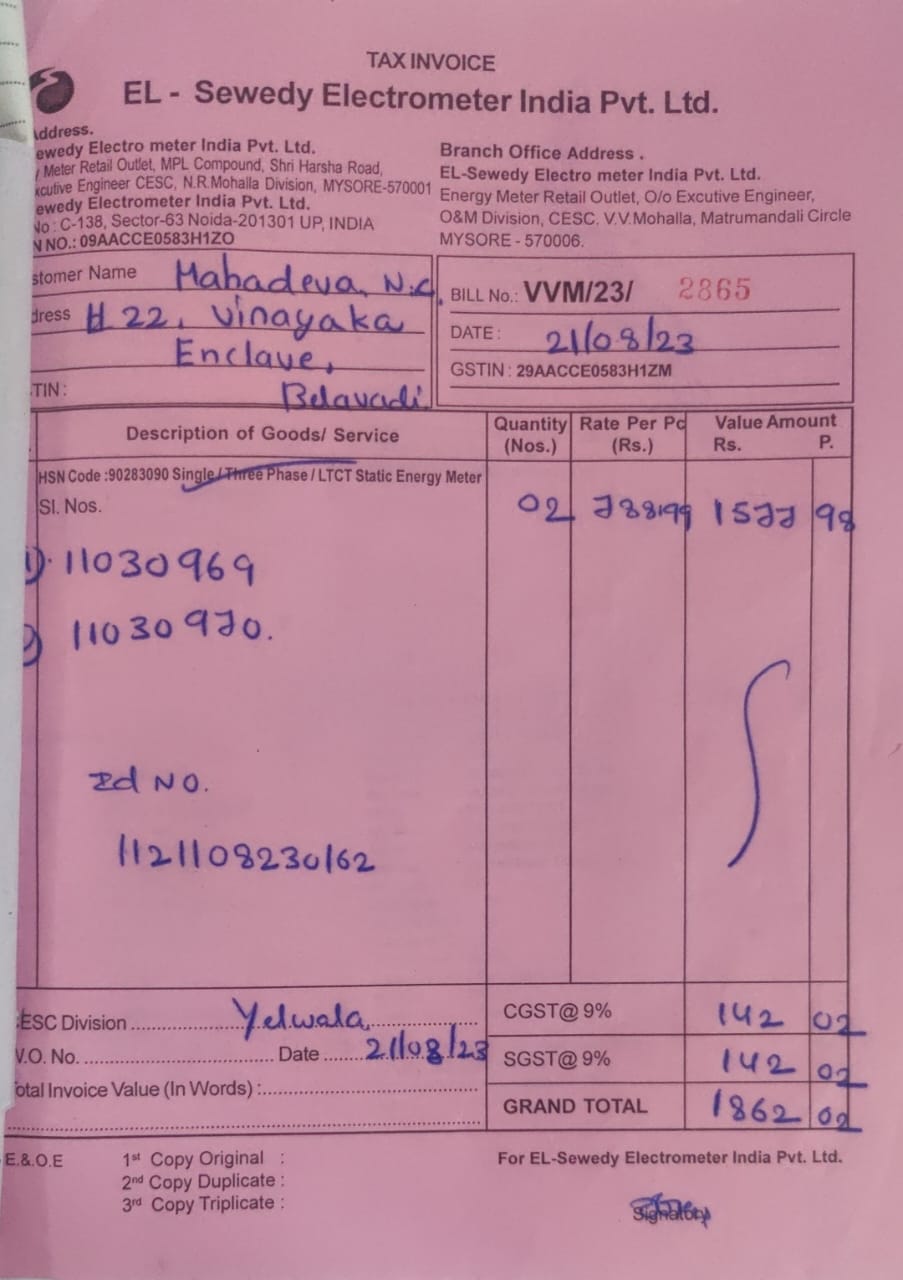 TAX INVOICE
EL - Sewedy Electrometer India Pvt. Ltd.
Address.
ewedy Electro meter India Pvt. Ltd.
Meter Retail Outlet, MPL Compound, Shri Harsha Road,
xcutive Engineer CESC, N.R.Mohalla Division, MYSORE-570001
ewedy Electrometer India Pvt. Ltd.
No : C-138, Sector-63 Noida-201301 UP, INDIA
N NO.: 09AACCE0583H1ZO
Branch Office Address .
EL-Sewedy Electro meter India Pvt. Ltd.
Energy Meter Retail Outlet, O/o Excutive Engineer,
O&M Division, CESC. V.V.Mohalla, Matrumandali Circle
MYSORE - 570006.
stomer Name Mahadeva. N.C.
dress # 22, Vinayaka
Enclave,
TIN : Belavadi.
BILL No.: VVM/23/ 2865
DATE : 21/08/23
GSTIN : 29AACCE0583H1ZM
Description of Goods/ Service Quantity (Nos.) Rate Per Pc (Rs.) Value Amount Rs. P.
HSN Code :90283090 Single / Three Phase / LTCT Static Energy Meter
Sl. Nos. 02 788.99 1577 98
1) 11030969
2) 11030970.
Id NO.
1121108230162
ESC Division Yelwala CGST@ 9% 142 02
V.O. No. Date 21/08/23 SGST@ 9% 142 02
otal Invoice Value (In Words) :
GRAND TOTAL 1862 02
E.&.O.E 1st Copy Original :
2nd Copy Duplicate :
3rd Copy Triplicate :
For EL-Sewedy Electrometer India Pvt. Ltd.
Signatory